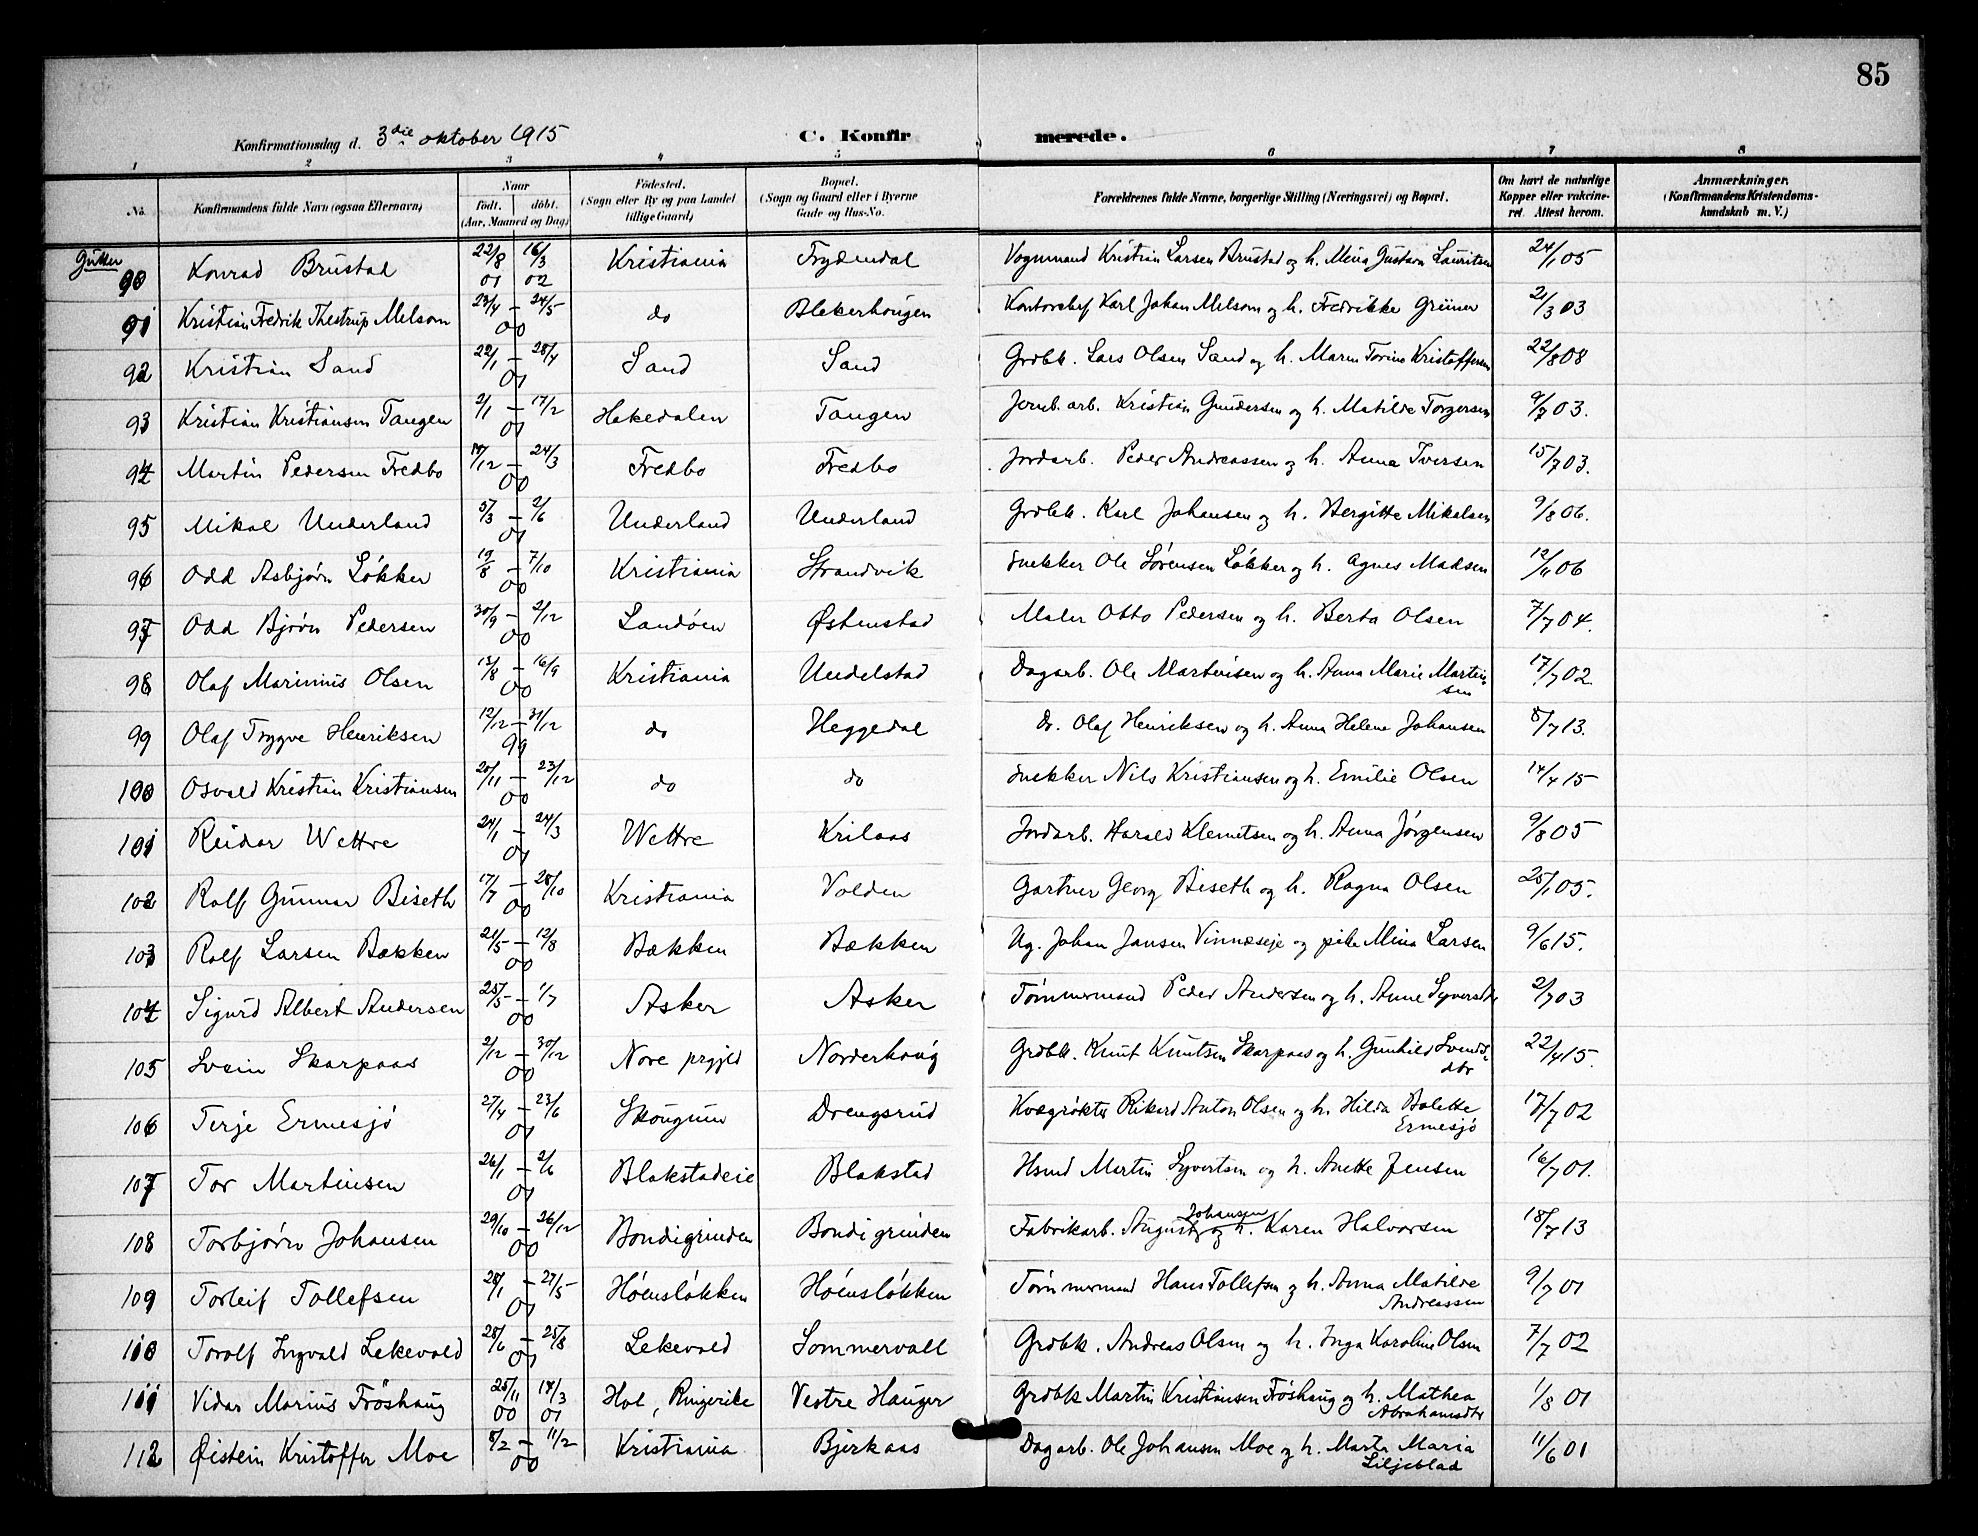 85
Konfirmationsdag d. 3die oktober 1915 C. Konfirmerede.
1 2 3 4 5 6 7 8
No. Konfirmandens fulde Navn (ogsaa Efternavn) Naar født. døbt. (Aar, Maaned og Dag) Fødested. (Sogn eller By og paa Landet tillige Gaard) Bopæl. (Sogn og Gaard eller i Byerne Gade og Hus-No. Forældrenes fulde Navne, borgerlige Stilling (Næringsvei) og Bopæl. Om havt de naturlige Kopper eller vaccineret. Attest herom. Anmærkninger. (Konfirmandens Kristendomskundskab m. V.)
Gutter
90 Konrad Brustad 22/8 01 16/3 02 Kristiania Frydendal Vognmand Kristian Larsen Brustad og h. Mina Gustava Lauritsen 24/1 05
91 Kristian Fredrik Thestrup Melsom 23/4 – 24/5 00 do Blekerhougen Kontorchef Karl Johan Melsom og h. Fredrikke Grüner 2/3 03
92 Kristian Sand 22/1 – 28/4 01 Sand Sand Grdbk. Lars Olsen Sand og h. Maren Torine Kristoffersen 22/8 08
93 Kristian Kristiansen Tangen 2/1 – 17/2 01 Hakedalen Tangen Jernb. arb. Kristian Gundersen og h. Matilde Torgersen 9/7 03.
94 Martin Pedersen Fredbo /12 – 24/3 00 Fredbo Fredbo Jordarb. Peder Andreassen og h. Anna Iversen 15/7 03.
95 Mikal Underland 5/3 – 2/6 01 Underland Underland Grdbk. Karl Johansen og h. Bergitte Mikalsen 9/8 06.
96 Odd Asbjørn Løkker 19/8 – 7/10 00 Kristiania Strandvik Snekker Ole Sørensen Løkker og h. Agnes Madsen 12/11 06
97 Odd Bjørn Pedersen 30/9 – 2/12 00 Landøen Østenstad Maler Otto Pedersen og h. Berta Olsen 7/7 04.
98 Olaf Marinius Olsen 13/8 – 16/9 00 Kristiania Undelstad Dagarb. Ole Martinisen og h. Anna Marie Martinsen 17/7 02.
99 Olaf Trygve Henriksen 12/12 – 31/12 99 do Heggedal Do. Olaf Henriksen og h. Anna Helene Johansen 8/7 13.
100 Osvald Kristian Kristiansen 20/11 – 23/12 00 do do Snekker Nils Kristiansen og h. Emilie Olsen 14/4 15
101 Reidar Wettre 24/1 – 24/3 01 Wettre Krilaas Jordarb. Harald Klemetsen og h. Anna Jørgensen 9/8 05
102 Ralf Gunnar Biseth 17/7 – 28/10 00 Kristiania Volden Gartner Georg Biseth og h. Ragna Olsen 25/1 05.
103 Rolf Larsen Bækken 21/5 – 12/8 00 Bækken Bækken Ug. Johan Jansen Vinnæseje og pike Mina Larsen 9/6 15.
104 Sigurd Albert Andersen 25/5 – 1/7 00 Asker Asker Tømmermand Peder Andersen og h. Anne Syversdtr 2/7 03
105 Svein Skarpaas 2/12 – 30/12 00 Nore prgjeld Norderhoug Grdbk. Knut Knutsen Skarpaas og h. Gunhild Svendsdtr 22/4 15.
106 Terje Ermesjø 27/4 – 23/6 01 Skougum Drengsrud Kvægrøkter Rikard Anton Olsen og h. Hilda Bolette Ermesjø 17/7 02
107 Tor Martinsen 26/1 – 2/6 01 Blakstadeie Blakstad Hsmd Martin Syvertsen og h. Anette Jensen 16/7 01.
108 Torbjørn Johansen 29/10 – 26/12 00 Bondigrinden Bondigrinden Fabrikarb. August Johansen og h. Karen Halvorsen 18/7 13
109 Torleif Tollefsen 28/1 – 27/5 01 Høensløkken Høensløkken Tømmermand Hans Tollefsen og h. Anna Matilde Andreassen 9/7 01
110 Torolf Ingvald Lekevold 28/6 – 25/8 01 Lekevold Sommervall Grdbk. Andreas Olsen og h. Inga Karoline Olsen 7/7 02
111 Vidar Marius Frøshaug 25/11 00 18/3 01 Hol, Ringerike Vestre Hauger Grdbk Martin Kristiansen Frøshaug og h. Mathea Abrahamsdtr 1/8 01
112 Øistein Kristoffer Moe 8/2 – 11/2 00 Kristiania Bjerkaas Dagarb. Ole Johansen Moe og h. Marta Maria Liljeblad 11/6 01